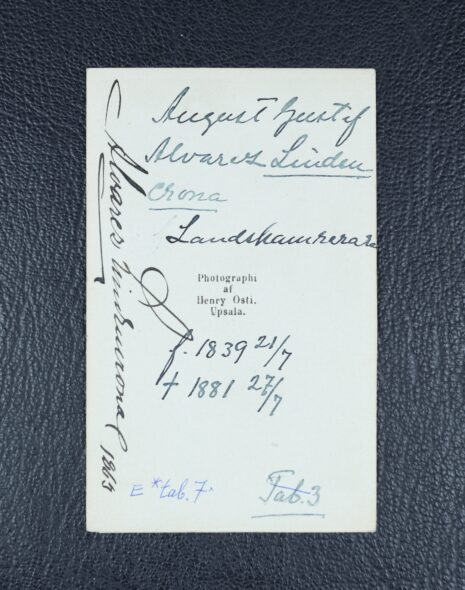 August Gustif
Alvarez Linden
crona
Landskamrerare
Photographi
af
Henry Osti.
Upsala.
f. 1839 21/7
† 1881 27/7
E *tab. 7^
Tab. 3
Alvares Lindencrona